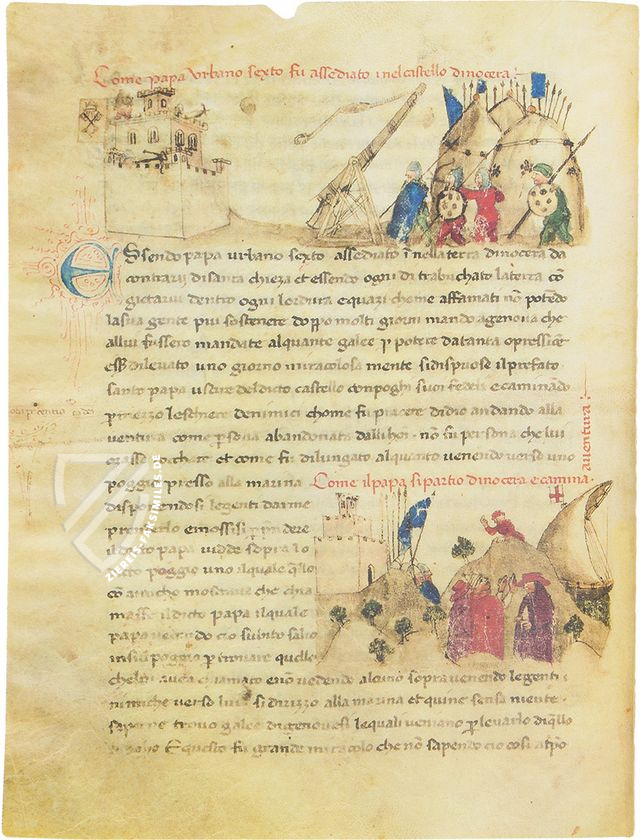 Come papa Urbano sexto fu assediato inel castello di nocera:
Essendo papa urbano sexto assediato i nella terra di nocera da
contrarij di santa chieza et essendo ogni di trabuchato la terra co
gictarui dentro ogni lordura e quazi chome affamati no potedo
la sua gente piu sostenere doppo molti giorni mando a genoua che
allui fussero mandate alquante galee p potere da tanta opressioe
esser di leuato uno giorno miracolosa mente si dispuose il prefato
santo papa uscire del dicto castello con poghi suoi fedeli e caminado
p mezzo le schiere de nimici chome fu piacere didio andando alla
ventura come psona abandonata dalli non fu persona che lui
tocchare et come fu dilungato alquanto uenendo uerso uno
poggio presso alla marina
Come il papa si partio di nocera e camina
aventura:
disponendosi le genti darme
prenderlo e mossisi p prindere
il dicto papa uidde sopra lo
dicto poggio uno il quale qllo
co ancho mostraua che chia
masse il dicto papa il quale
papa uedendo cio subito salio
insul poggio p trouare quello
che lui auea chiamato e no vedendo alcuno sopra uenendo le genti
nimiche uerso lui si dirizzo alla marina et quine sensa niente
saperne trouo galee di genouesi le quali ueniano p leuarlo di qllo
E questo fu grande miracolo che no sapendo cio cosi a tpo
ZIEREIS FAKSIMILES.DE